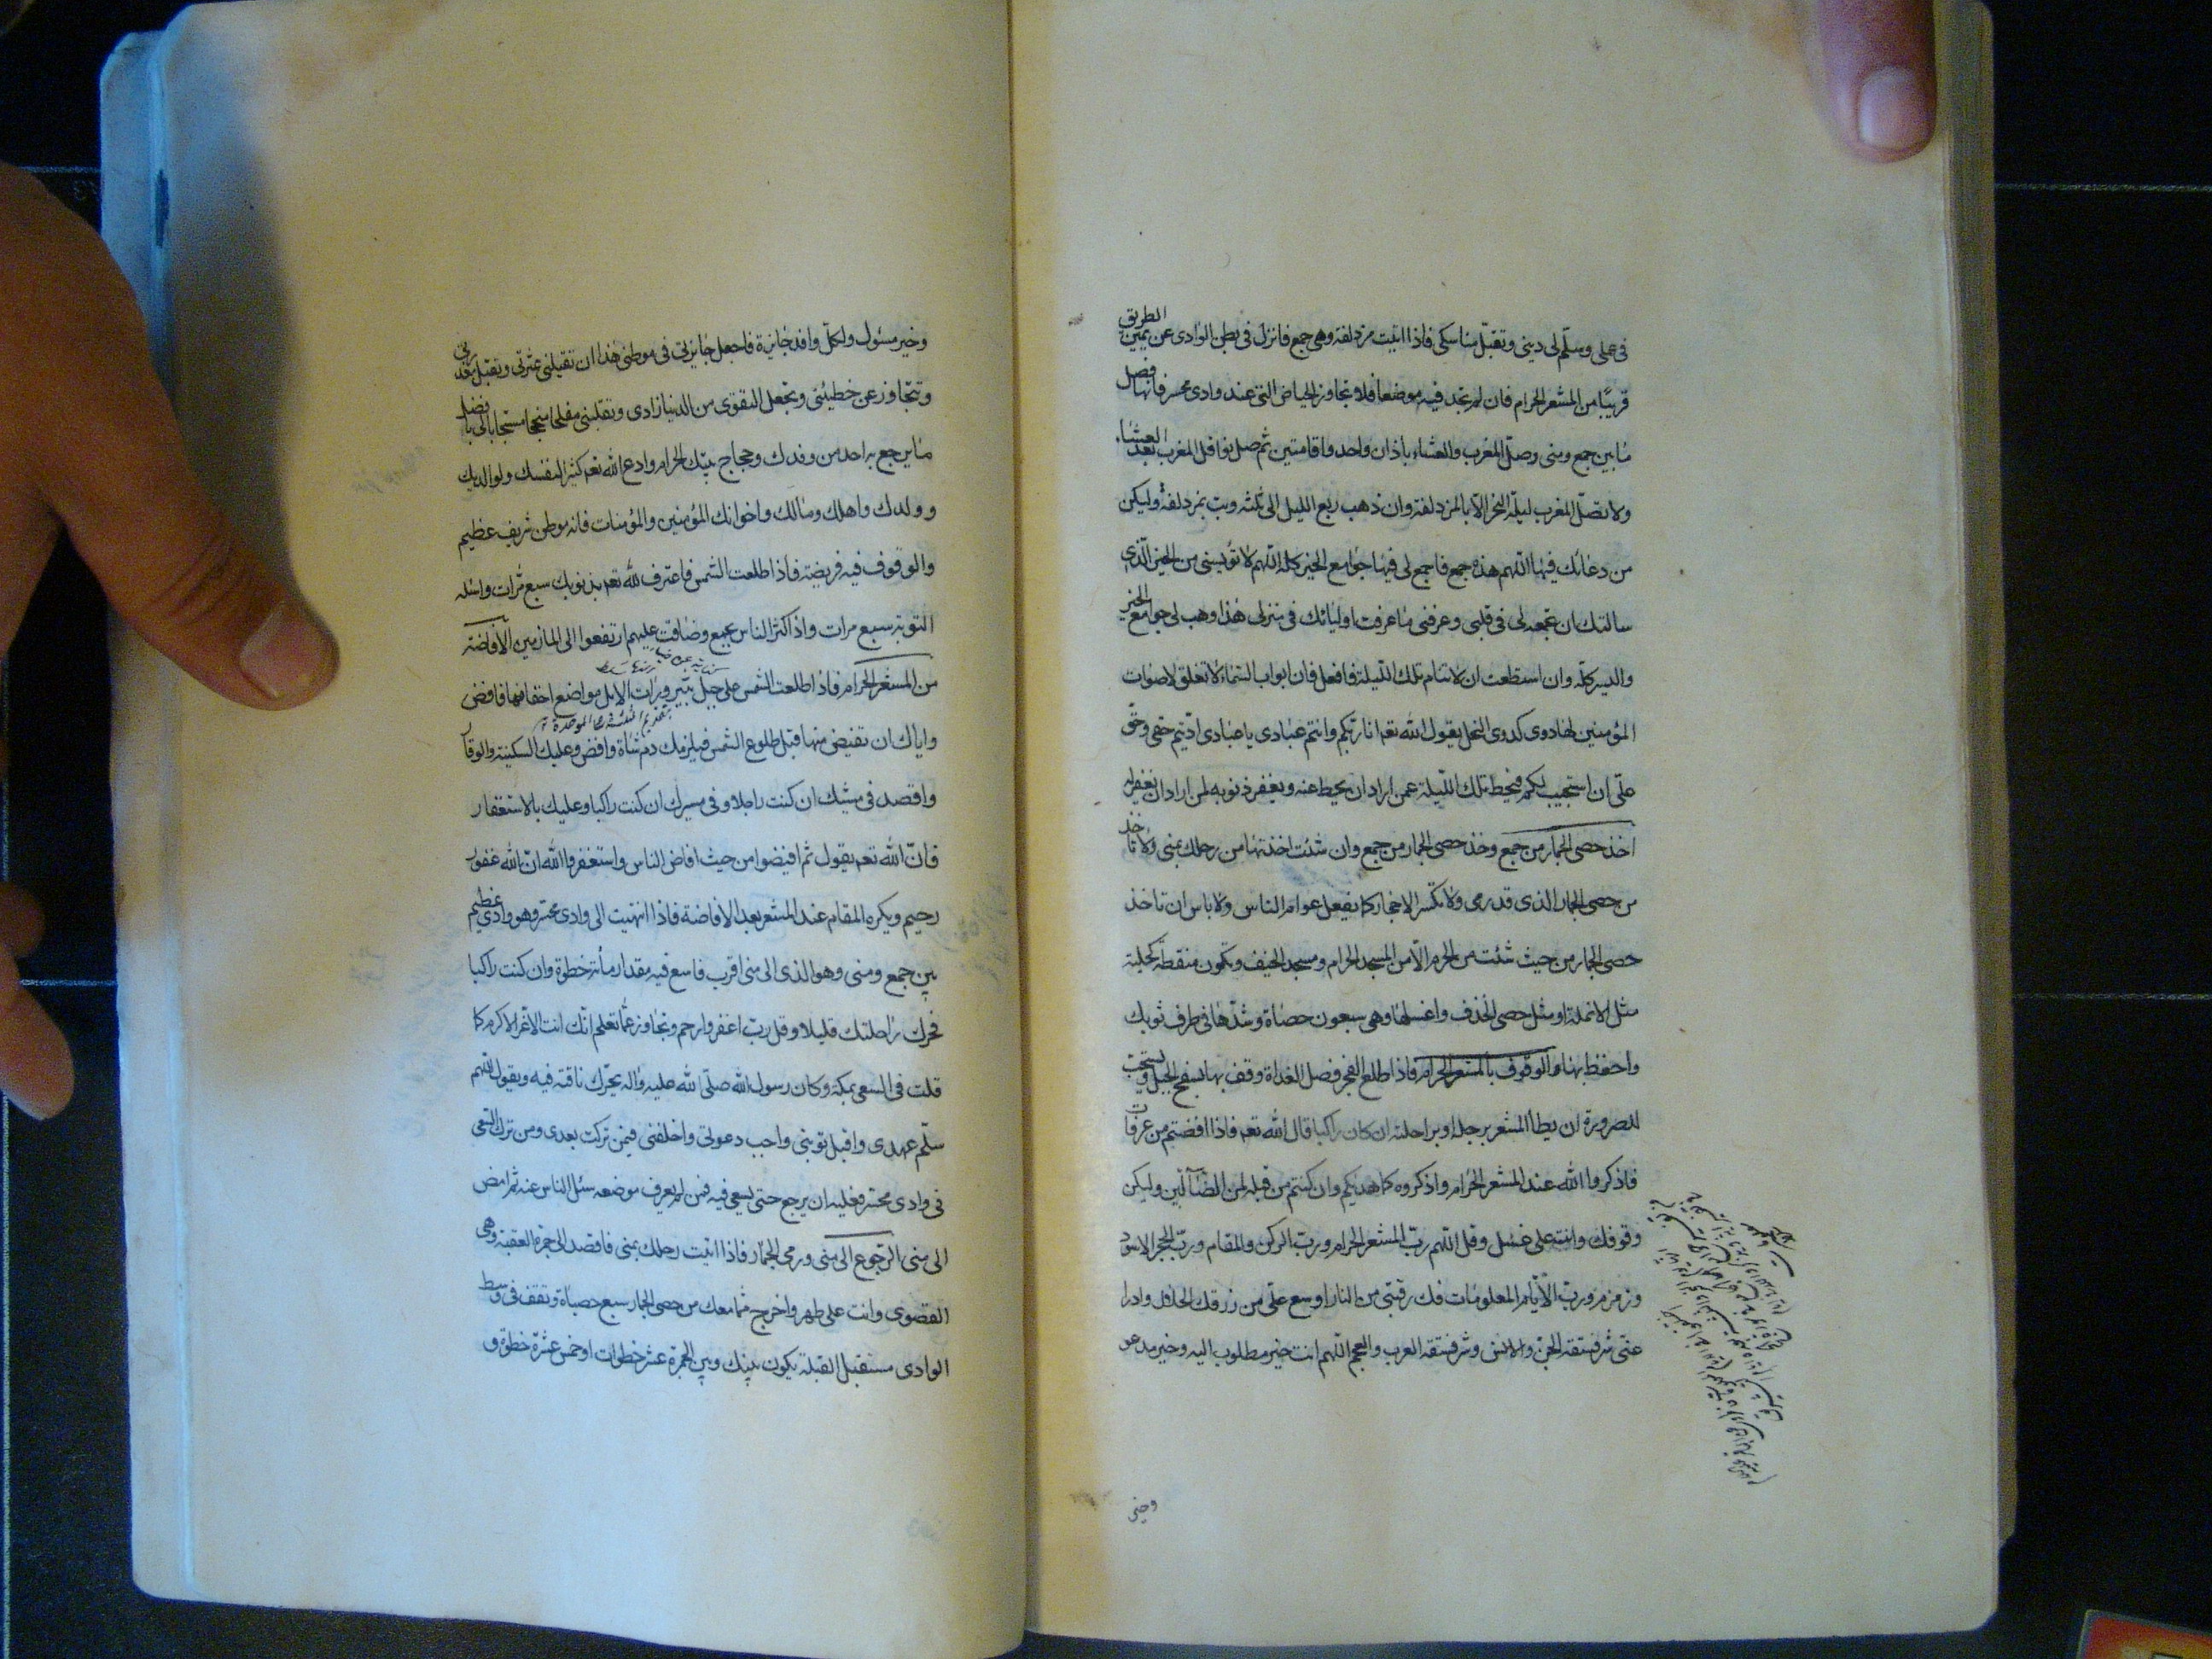 فى عملى وسلّم لى دينى وتقبّل مناسكى فاذا اتيت مزدلفة وهى جمع فانزل فى بطن الوادى عن يمين الطريق
قريبًا من المشعر الحرام فان لم تجد فيه موضعا فلا تجاوز الحياض التى عند وادى محسر فانها فصل
ما بين جمع ومنى وصلّ المغرب والعشاء باذان واحد واقامتين ثم صل نوافل المغرب بعد العشاء
ولا تصلّ المغرب ليلة النحر الّا بالمزدلفة وان ذهب ربع الليل الى ثلثه وبت بمزدلفة وليكن
من دعائك فيها اللّهم هذه جمع فاجمع لى فيها جوامع الخير كله اللّهم لا تؤيسنى من الخير الّذى
سالتك ان تجمعه لى فى قلبى وعرفنى ما عرفت اوليائك فى منزلى هذا وهب لى جوامع الخير
واليسر كلّه وان استطعت ان لا تنام تلك اللّيلة فافعل فان ابواب السّماء لا تغلق لاصوات
المؤمنين لها دوى كدوى النحل يقول الله تعه انا ربّكم وانتم عبادى يا عبادى ادّيتم حقى وحقّ
علىّ ان استجيب لكم فيحط تلك اللّيلة عمن اراد ان يحيط عنه ويغفر ذنوبه لمن اراد ان يغفر له
اخذ حصى الجمار من جمع وخذ حصى الجمار من جمع وان شئت اخذتها من رحلك بمنى ولا تاخذ
من حصى الجمار الذى قد رمى ولا تكسر الاحجار كما يفعل عوام الناس ولا باس ان تاخذ
حصى الجمار من حيث شئت من الحرم الّا من المسجد الحرام ومسجد الخيف وتكون منقطة كحلية
مثل الانملة او مثل حصى الخذف واغسلها وهى سبعون حصاة وشدّها فى طرف ثوبك
واحفظ بها الوقوف بالمشعر الحرام فاذا طلع الفجر فصل الغداة وقف بها بسفح الجبل ويستحبّ
للصرورة ان يطا المشعر برجله او براحلته ان كان راكبا قال الله تعه فاذا افضتم من عرفات
فاذكروا الله عند المشعر الحرام واذكروه كما هديكم وان كنتم من قبله لمن الضّآلّين وليكن
وقوفك وانت على غسل وقل اللّهم ربّ المشعر الحرام وربّ الركن والمقام وربّ الحجر الاسود
وزمزم وربّ الايّام المعلومات فك رقبتى من النار واوسع علىّ من رزقك الحلال وادرا
عنّى شر فسقة الجنّ والانس وشر فسقة العرب والعجم اللّهم انت خير مطلوب اليه وخير مدعو
وخير مسئول ولكلّ وافد جايزة فاجعل جايزتى فى موطنى هذا ان تقيلنى عثرتى وتقبل معذرتى
وتتجاوز عن خطيئتى وتجعل التقوى من الدنيا زادى وتقلبنى مفلحا منجحا مستجابا لى بافضل
ما يرجع به احد من وفدك وحجاج بيتك الحرام وادع الله تعه كثيرا لنفسك ولوالديك
وولدك واهلك ومالك واخوانك المؤمنين والمؤمنات فانه موطن شريف عظيم
والوقوف فيه فريضة فاذا طلعت الشمس فاعترف لله تعه بذنوبك سبع مرّات واسئله
التوبة سبع مرات واذا كثر الناس بجمع وضاقت عليهم ارتفعوا الى المازمين باب الافاضة
من المشعر الحرام فاذا طلعت الشمس على جبل ثبير ورات الابل مواضع اخفافها فافض
واياك ان تفيض منها قبل طلوع الشمس فيلزمك دم شاة وافض وعليك السكينة والوقار
واقصد فى مشيك ان كنت راجلا وفى مسيرك ان كنت راكبا وعليك بالاستغفار
فانّ الله تعه يقول ثم افيضوا من حيث افاض الناس واستغفروا الله انّ الله غفور
رحيم ويكره المقام عند المشعر بعد الافاضة فاذا انتهيت الى وادى محسّر وهو وادى عظيم
بين جمع ومنى وهو الذى الى منى اقرب فاسع فيه مقدار مأة خطوة وان كنت راكبا
فحرك راحلتك قليلا وقل ربّ اغفر وارحم وتجاوز عمّا تعلم انّك انت الاعزّ الاكرم كما
قلت فى السعى بمكة وكان رسول الله صلّى الله عليه واله يحرّك ناقته فيه ويقول اللّهم
سلّم عهدى واقبل توبتى واجب دعوتى واخلفنى فيمن تركت بعدى ومن ترك السّعى
فى وادى محسّر فعليه ان يرجع حتى يسعى فيه فمن لم يعرف موضعه سئل الناس عنه ثم امض
الى منى الرّجوع الى منى ورمى الجمار فاذا اتيت رحلك بمنى فاقصد الى جمرة العقبة وهى
القصوى وانت على طهر واخرج مما معك من حصى الجمار سبع حصياة وتقف فى وسط
الوادى مستقبل القبلة يكون بينك وبين الجمرة عشر خطوات او خمس عشرة خطوة و